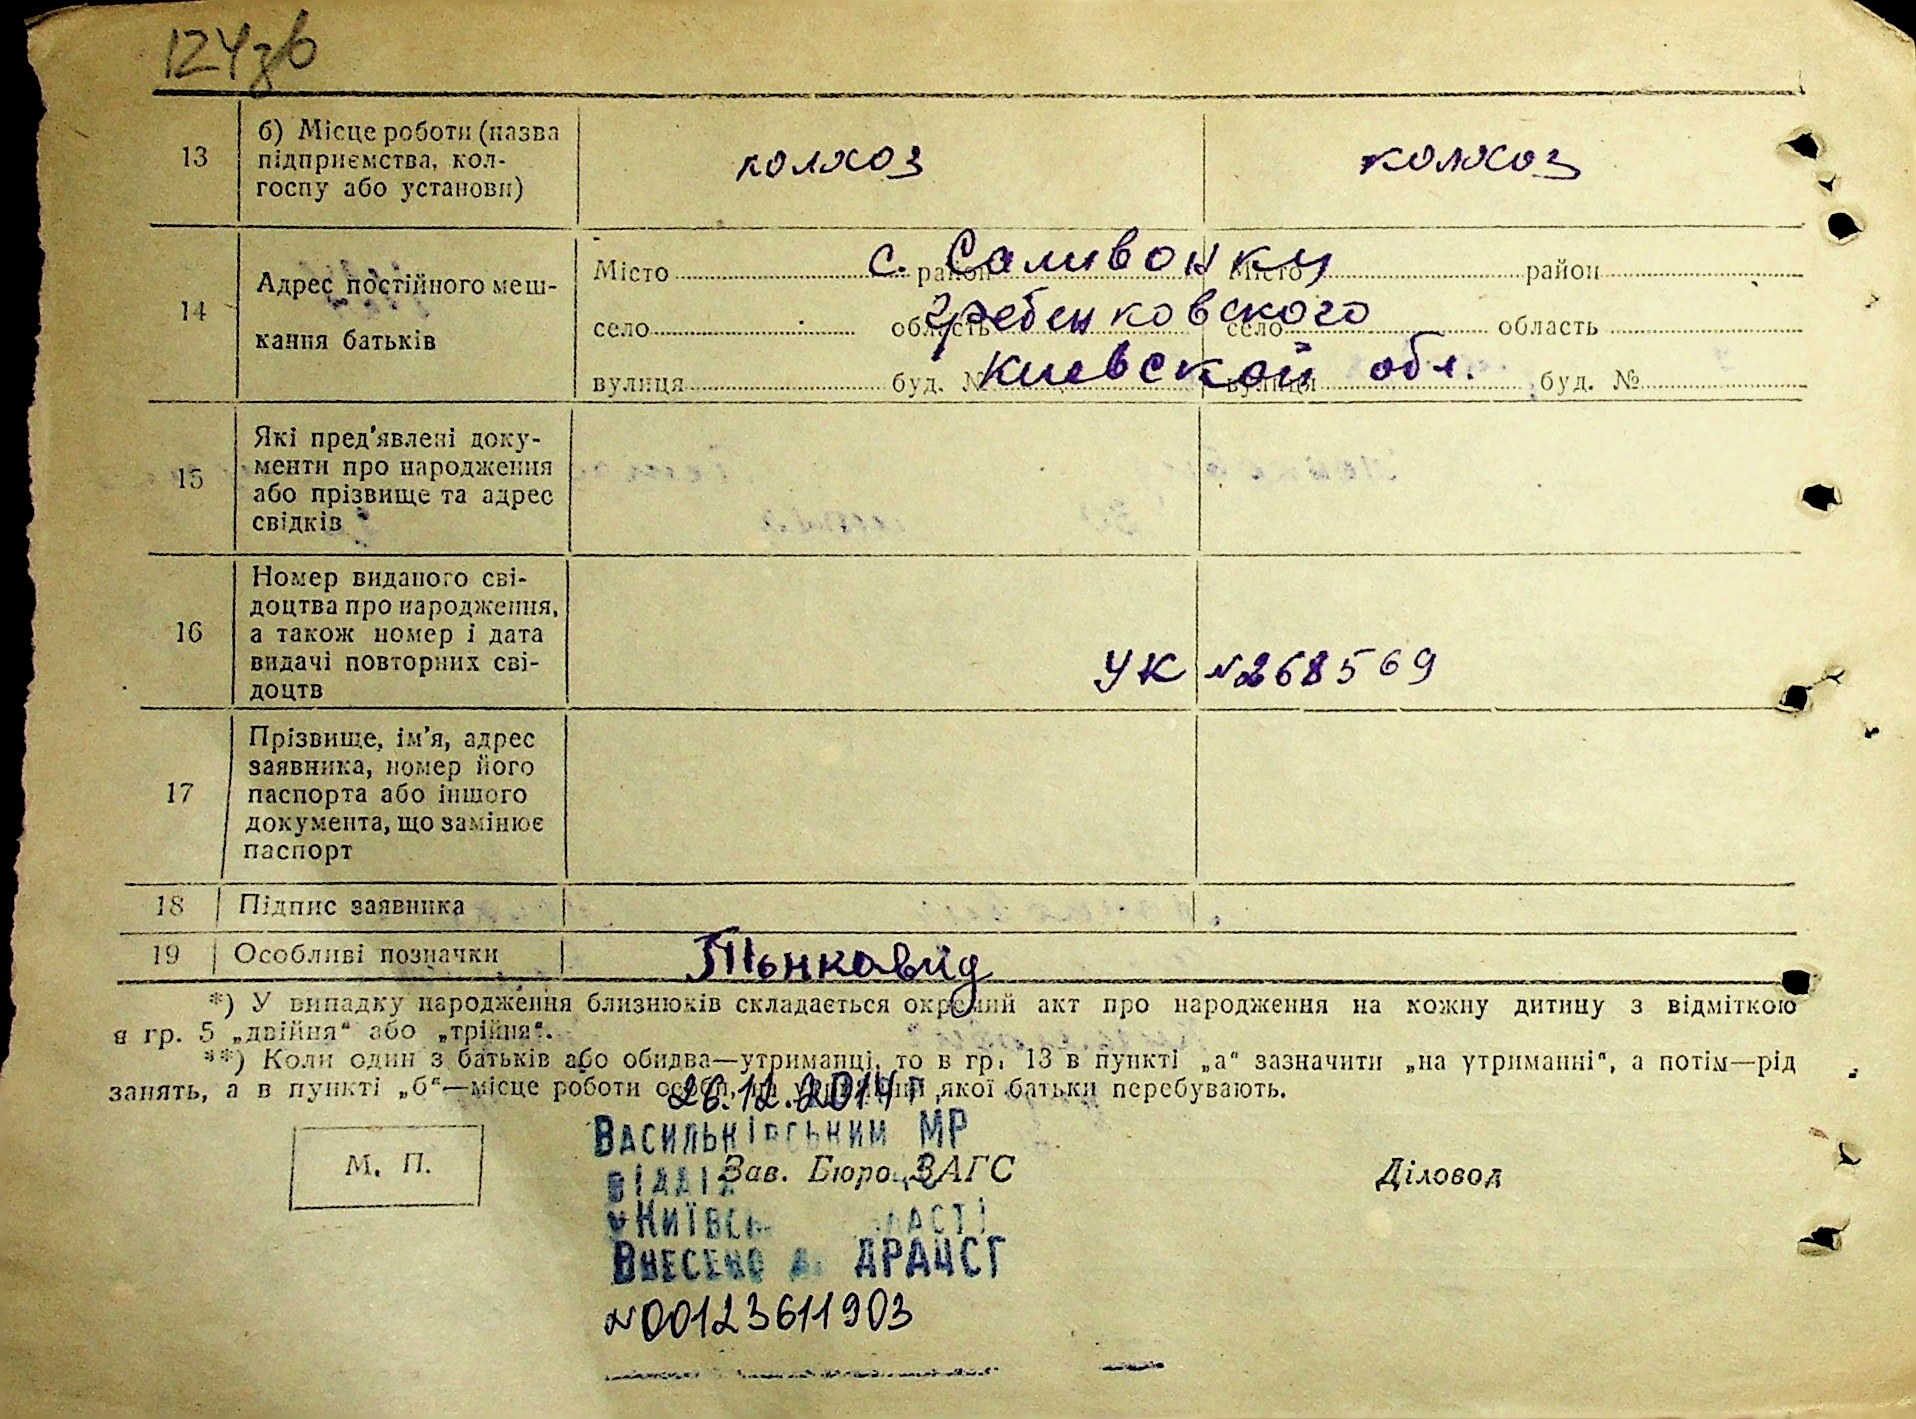 124зв
13
б) Місце роботи (назва
підприємства, кол-
госпу або установи)
колхоз
колхоз
14
Адрес постійного меш-
кання батьків
Місто район Місто район
с. Саливонки
село область село область
Гребенковского
вулиця буд. № вулиця буд. №
Киевской обл.
15
Які пред'явлені доку-
менти про народження
або прізвище та адрес
свідків
16
Номер виданого сві-
доцтва про народження,
а також номер і дата
видачі повторних сві-
доцтв
УК №268569
17
Прізвище, ім'я, адрес
заявника, номер його
паспорта або іншого
документа, що замінює
паспорт
18 Підпис заявника
19 Особливі позначки
*) У випадку народження близнюків складається окремий акт про народження на кожну дитину з відміткою
в гр. 5 „двійня“ або „трійня“.
**) Коли один з батьків або обидва—утриманці, то в гр. 13 в пункті „а“ зазначити „на утриманні“, а потім—рід
занять, а в пункті „б“—місце роботи особи, на утриманні якої батьки перебувають.
26.12.2014
М. П.
Васильківським МР
Зав. Бюро ЗАГС
Діловод
Внесено до ДРАЦСГ
№00123611903